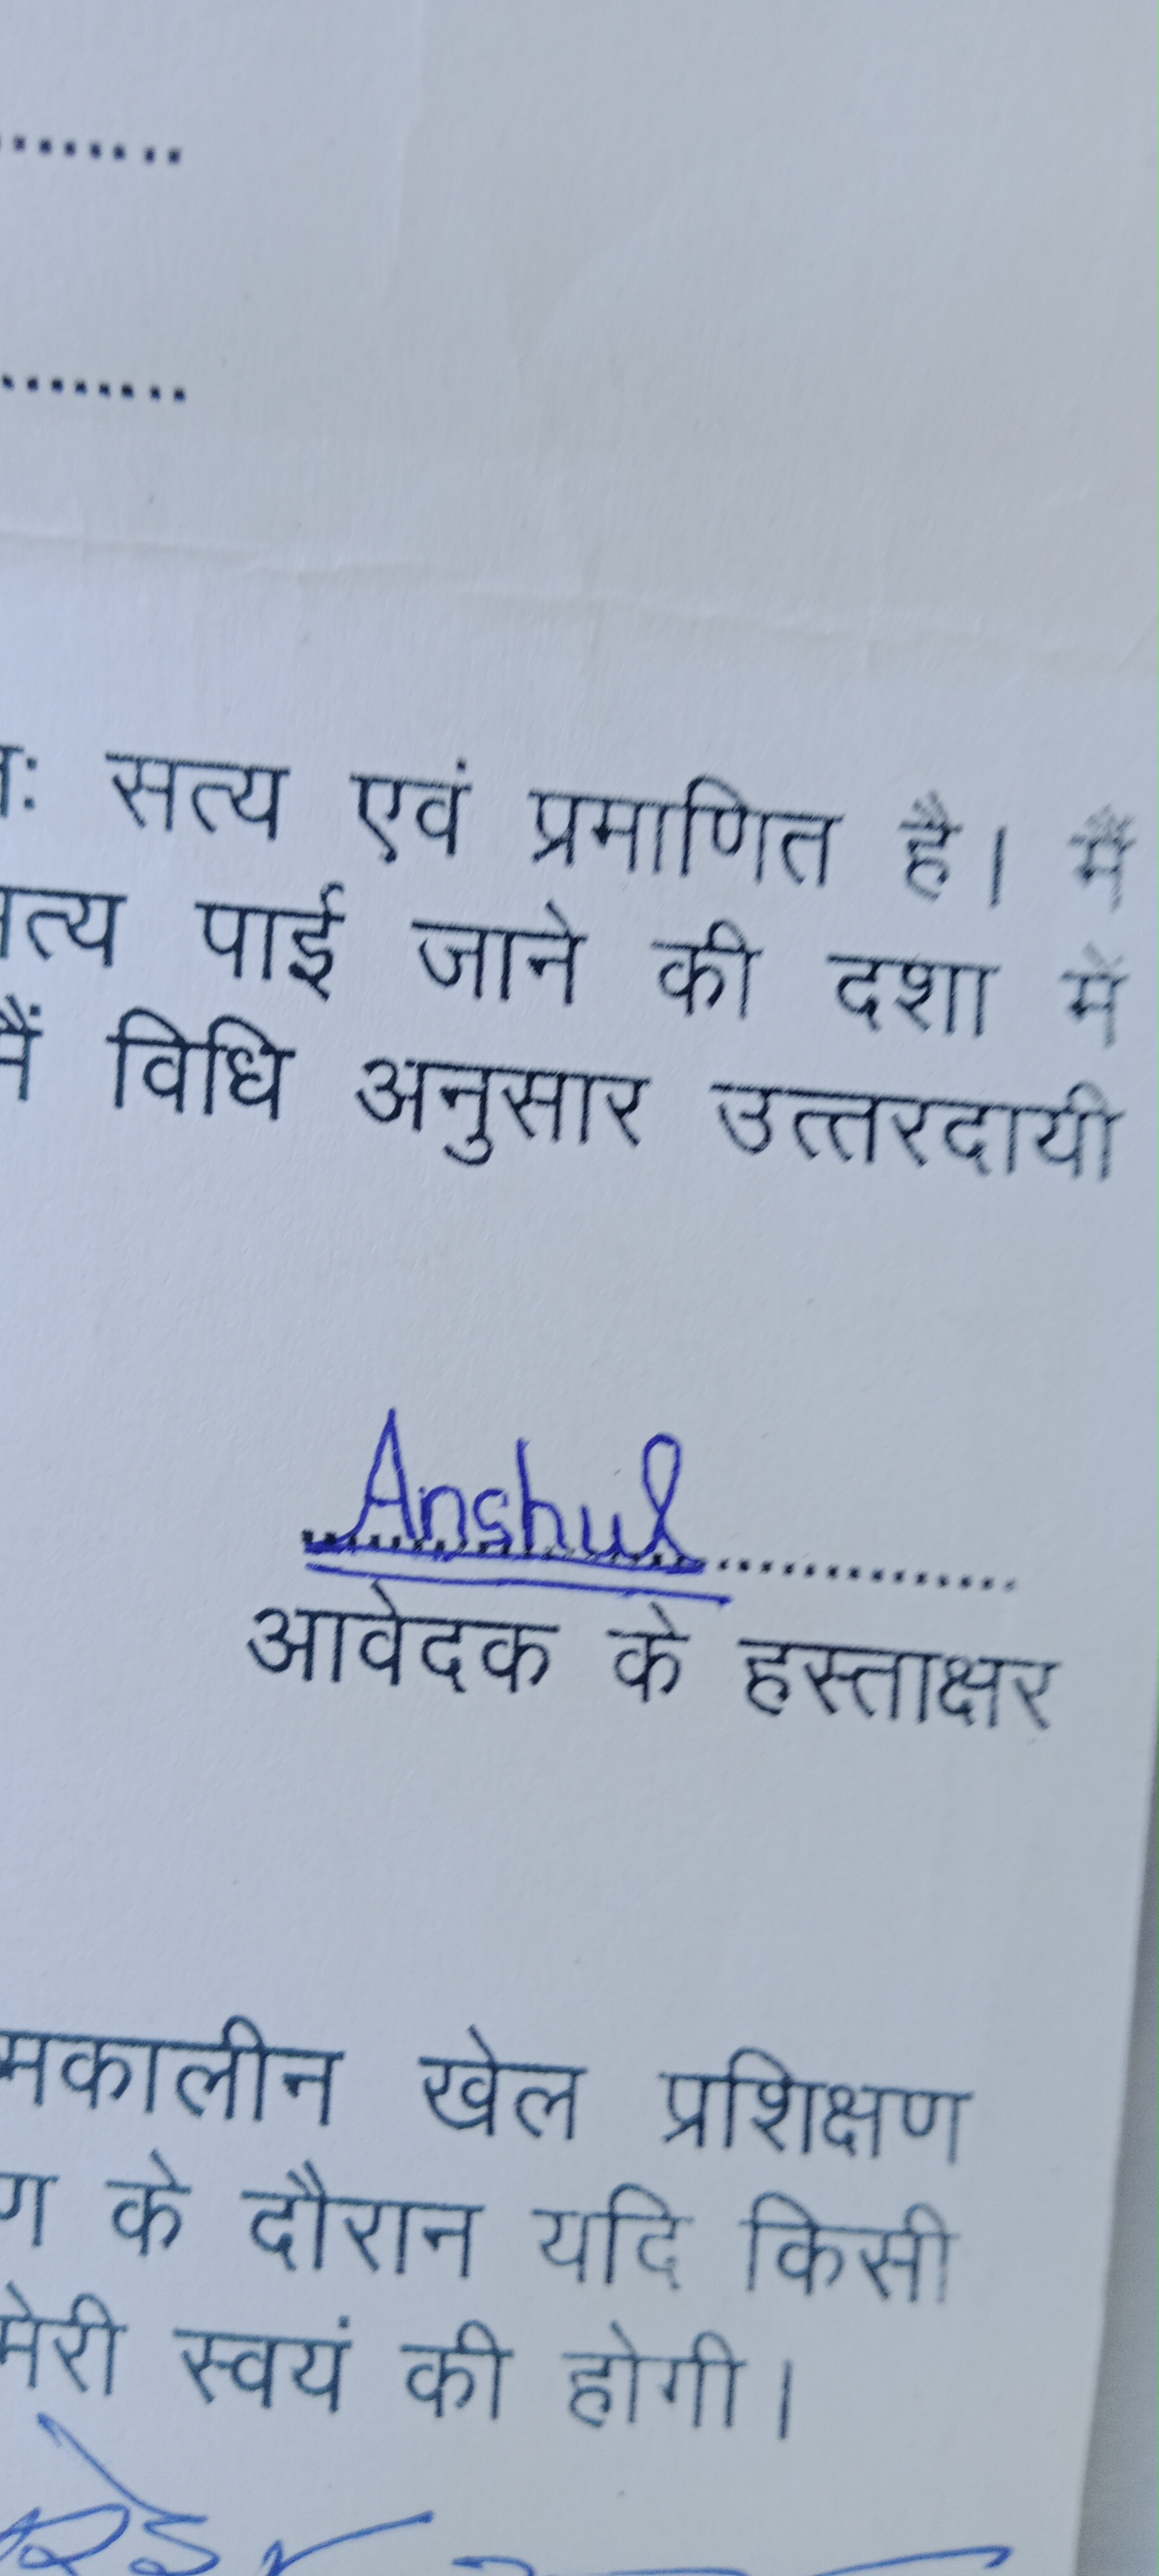 सत्य एवं प्रमाणित है। मैं
पाई जाने की दशा में
विधि अनुसार उत्तरदायी
Anshul
आवेदक के हस्ताक्षर
खेल प्रशिक्षण
के दौरान यदि किसी
मेरी स्वयं की होगी।